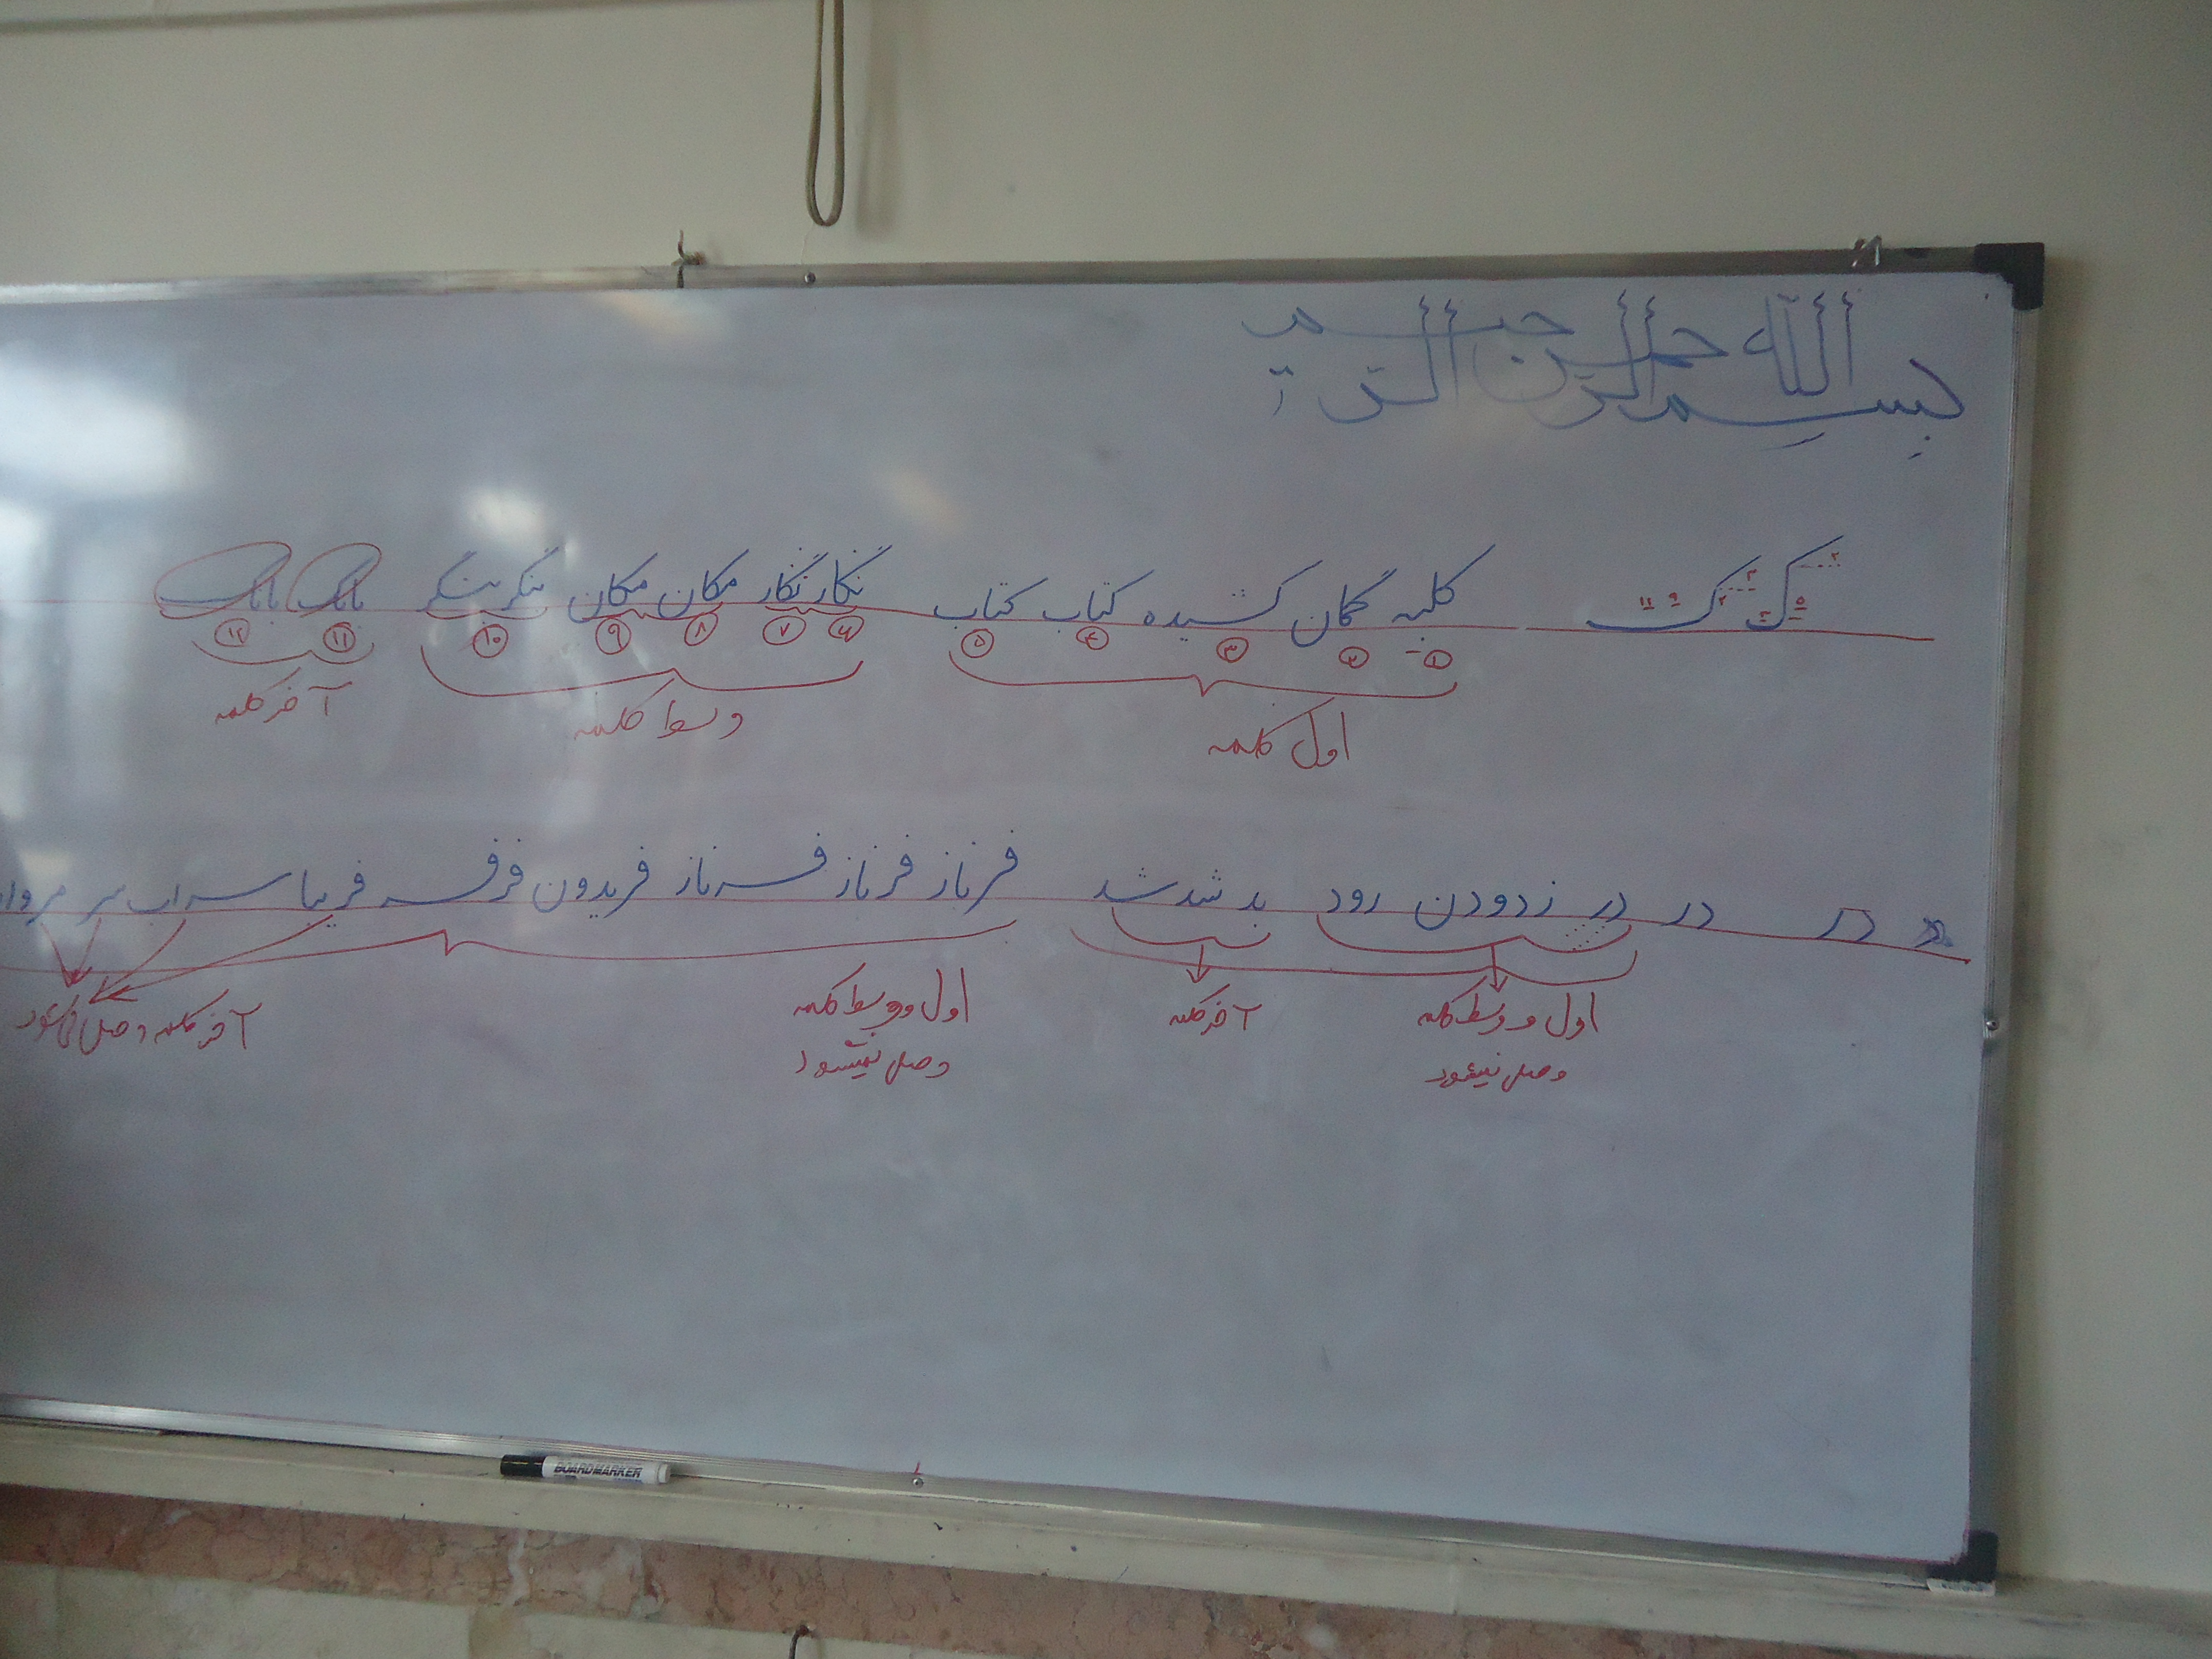 بسم الله الرحمن الرحیم
ک ک کلبه گمان کشیده کتاب کتاب نگار نگار مکان مکان بنگر بنگر بابک بابک
۱ ۲ ۳ ۴ ۵ ۶ ۷ ۸ ۹ ۱۰ ۱۱ ۱۲
اول کلمه وسط کلمه آخر کلمه
د در در زدودن رود بد شد شد فرناز فرناز فرناز فریدون فرفره فریبا سراب سر
اول و وسط کلمه آخر کلمه اول و وسط کلمه آخر کلمه وصل میشود
وصل نمیشود وصل نمیشود
BOARDMARKER